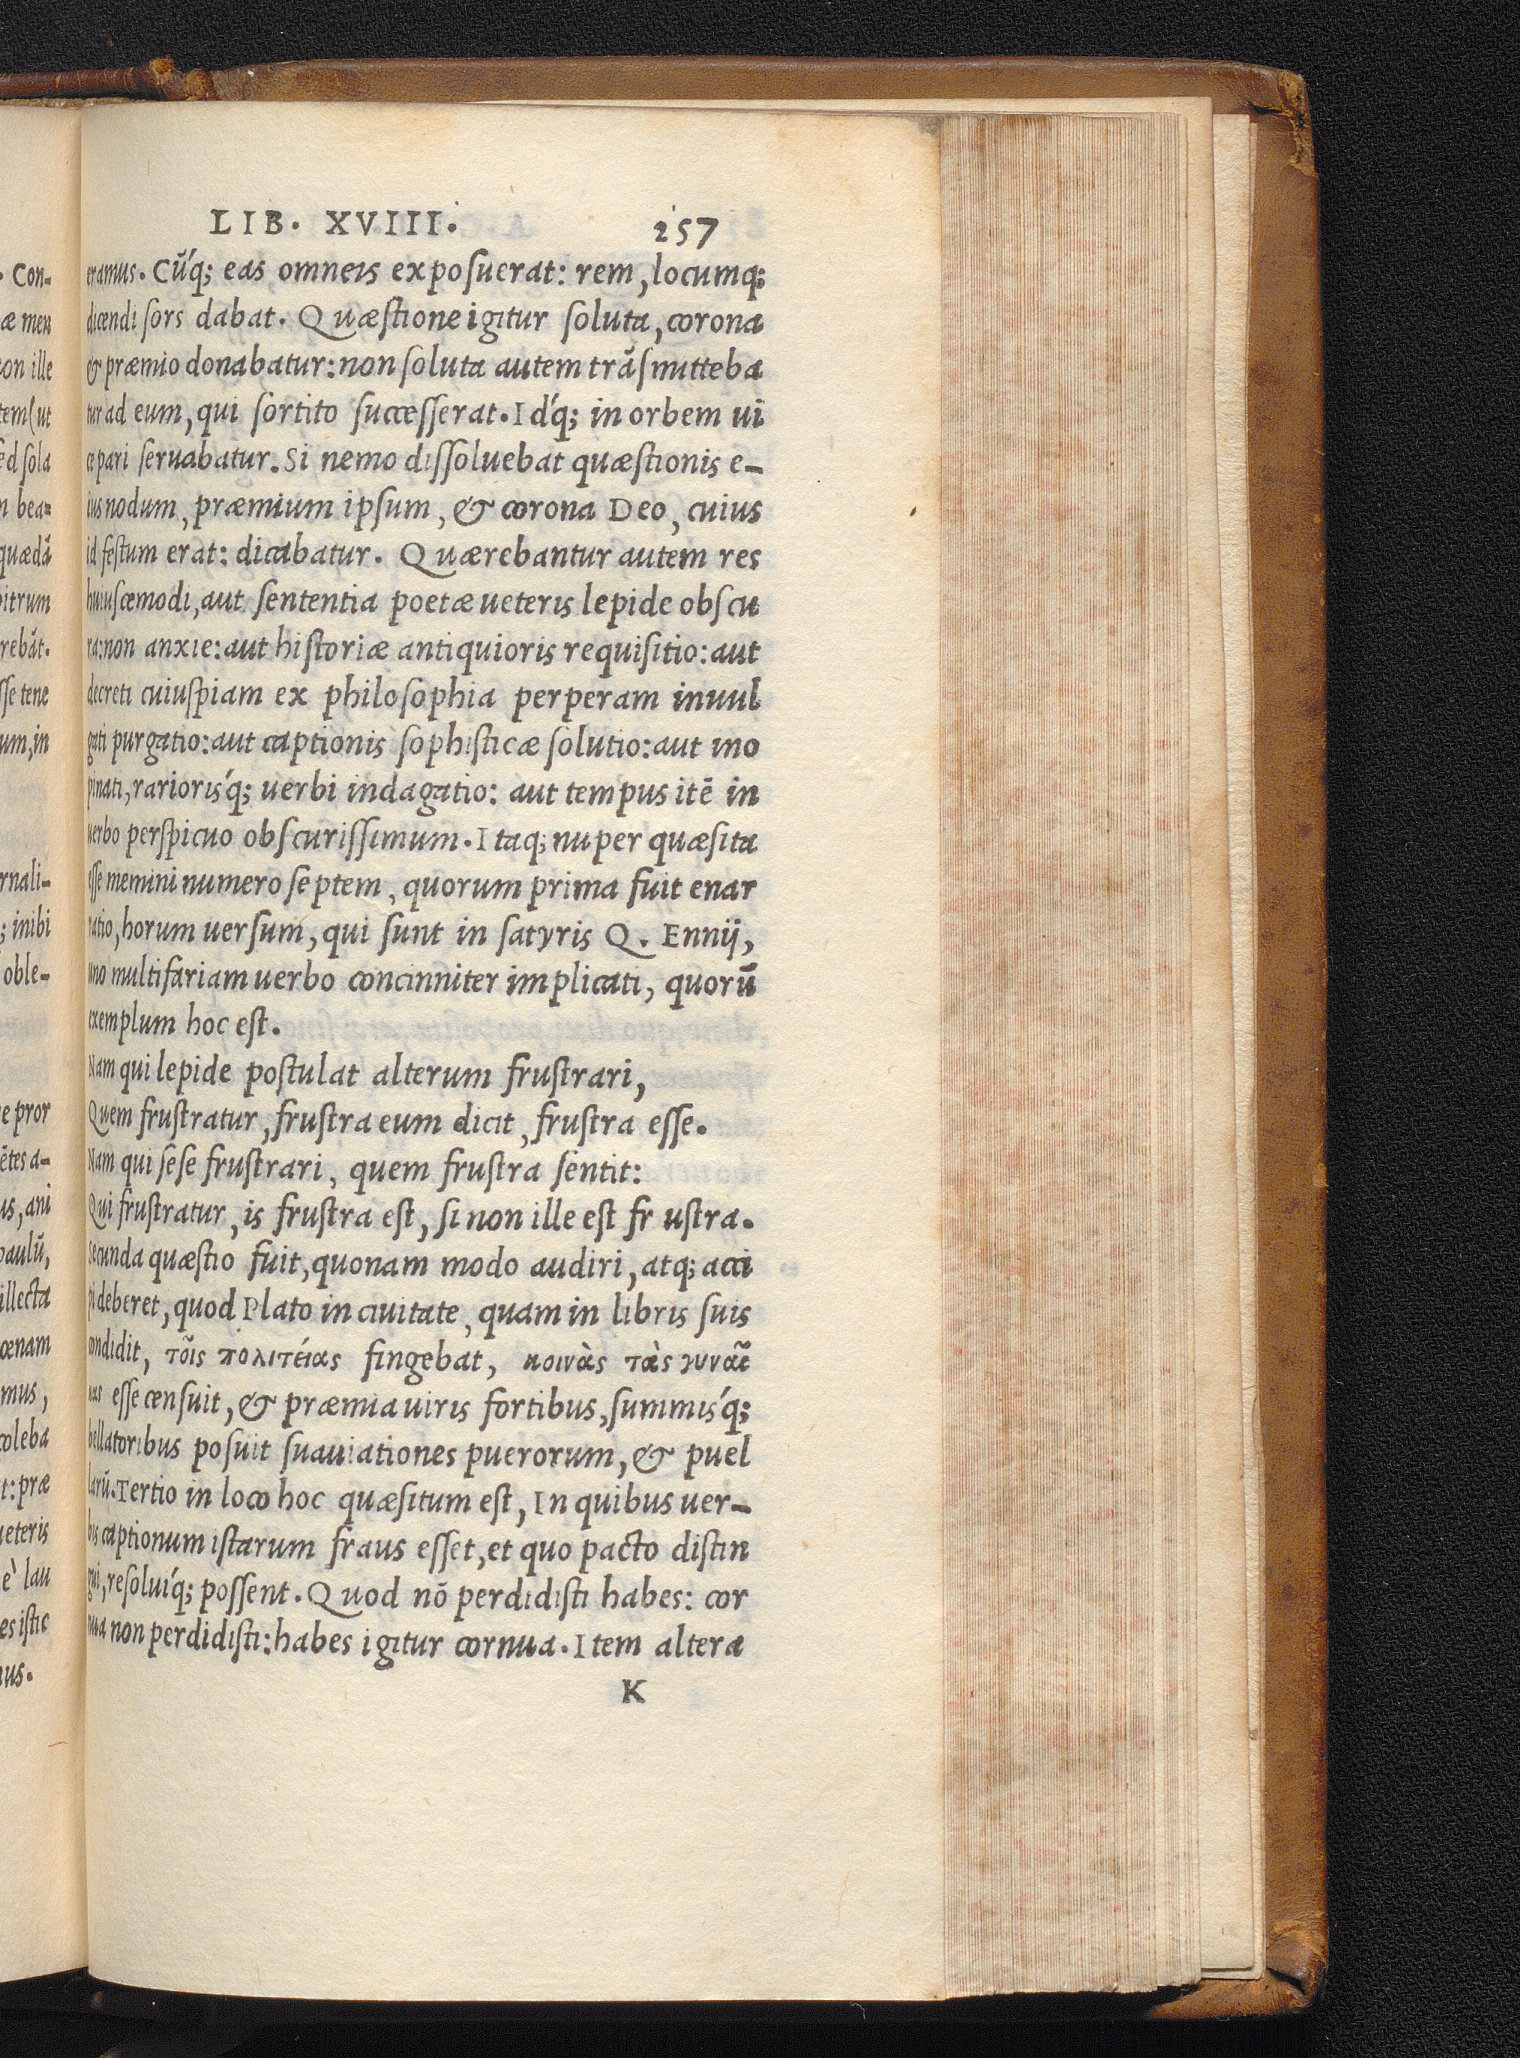 LIB. XVIII. 257
eramus. Cṹq; eas omneis exposuerat: rem, locumq;
dicendi sors dabat. Quæstione igitur soluta, corona
& præmio donabatur: non soluta autem trãsmitteba
tur ad eum, qui sortito successerat. Id́q; in orbem ui
ce pari seruabatur. Si nemo dissoluebat quæstionis e-
ius nodum, præmium ipsum, & corona Deo, cuius
id festum erat: dicabatur. Quærebantur autem res
huiuscemodi, aut sententia poetæ ueteris lepide obscu
ra: non anxie: aut historiæ antiquioris requisitio: aut
decreti cuiuspiam ex philosophia perperam inuul
gati purgatio: aut captionis sophisticæ solutio: aut ino
pinati, rarioriśq; uerbi indagatio: aut tempus itẽ in
uerbo perspicuo obscurissimum. Itaq; nuper quæsita
esse memini numero septem, quorum prima fuit enar
ratio, horum uersum, qui sunt in satyris Q. Ennij,
uno multifariam uerbo concinniter implicati, quorũ
exemplum hoc est.
Nam qui lepide postulat alterum frustrari,
Quem frustratur, frustra eum dicit, frustra esse.
Nam qui sese frustrari, quem frustra sentit:
Qui frustratur, is frustra est, si non ille est fr ustra.
Secunda quæstio fuit, quonam modo audiri, atq; acci
pi deberet, quod Plato in ciuitate, quam in libris suis
condidit, τοῖς πολιτείας fingebat, κοινὰς τὰς γυναῖ
κας esse censuit, & præmia uiris fortibus, summiśq;
bellatoribus posuit suauiationes puerorum, & puel
larũ. Tertio in loco hoc quæsitum est, In quibus uer-
bis captionum istarum fraus esset, et quo pacto distin
gui, resoluíq; possent. Quod nõ perdidisti habes: cor
nua non perdidisti: habes igitur cornua. Item altera
K